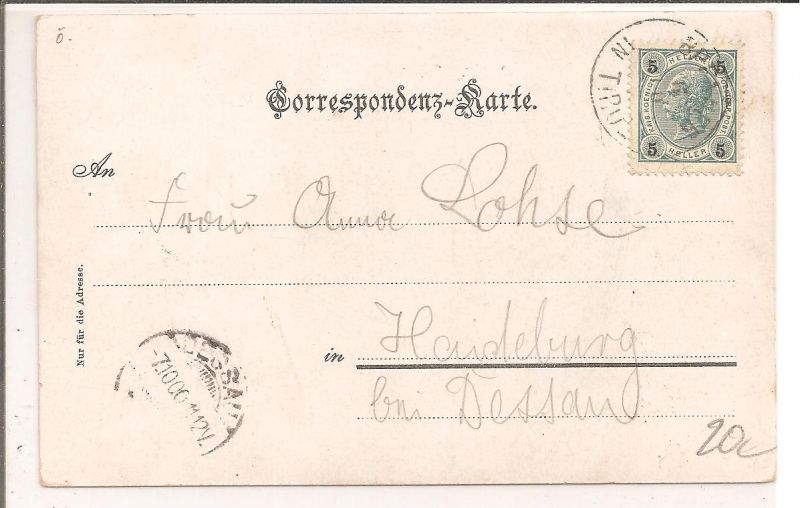 ö.
Correspondenz-Karte.
IN TIROL
5 HELLER 5
KAIS. KOENIGL. OESTERR. POST.
5 HELLER 5
An
Frau Anna Lohse
Nur für die Adresse.
in Haideburg
bei Dessau
DESSAU
7.10.00.11-12V.
20